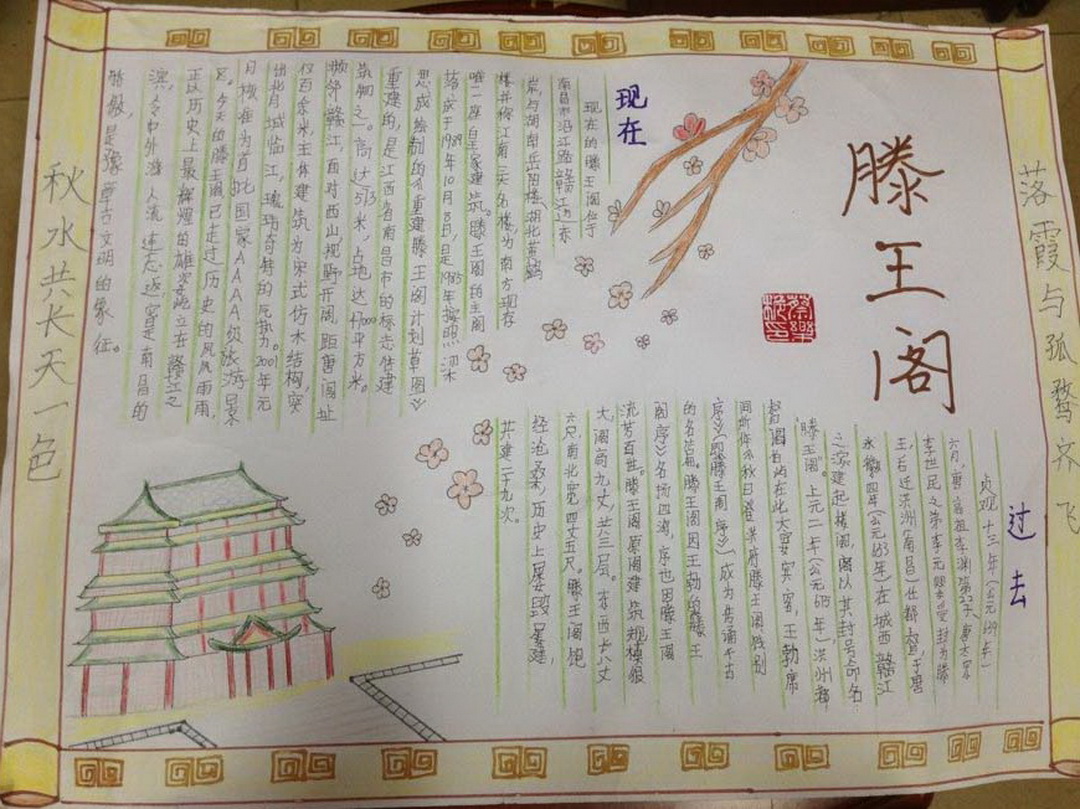 落霞与孤鹜齐飞
滕王阁
过去
贞观十三年(公元639年)
六月,唐高祖李渊第22子唐太宗
李世民之弟李元婴受封为滕
王,后迁洪洲(南昌)任都督,于唐
永徽四年(公元653年)在城西赣江
之滨建起楼阁,阁以其封号命名
“滕王阁”。上元二年(公元675年),洪州都
督阎伯屿在此大宴宾客,王勃席
间所作《秋日登洪府滕王阁饯别
序》(即《滕王阁序》)成为传诵千古
的名篇。滕王阁因王勃的《滕王
阁序》名扬四海,序也因滕王阁
流芳百世。滕王阁原阁建筑规模很
大,阁高九丈,共三层。东西长八丈
六尺,南北宽四丈五尺。滕王阁饱
经沧桑,历史上屡毁屡建,
共建二十九次。
现在
现在的滕王阁位于
南昌市沿江路赣江边,亦
岩与湖南岳阳楼、湖北黄鹤
楼并称江南三大名楼,为南方现存
唯一座皇家建筑。滕王阁的主阁
落成于1989年10月8日,是1985年按照梁
思成绘制的《重建滕王阁计划草图》
重建的,是江西省南昌市的标志性建
筑物之一。高达57.5米,占地达47000平方米。
濒邻赣江,面对西山,视野开阔,距唐阁址
仅百余米,主体建筑为宋式仿木结构,突
出背城临江,瑰玮奇特的气势。2001年元
月核准为首批国家AAAA级旅游景
区。今天的滕王阁已走过历史的风风雨雨,
正以历史上最辉煌的雄姿屹立在赣江之
滨,令中外游人流连忘返,它是南昌的
骄傲,是豫章古文明的象征。
秋水共长天一色